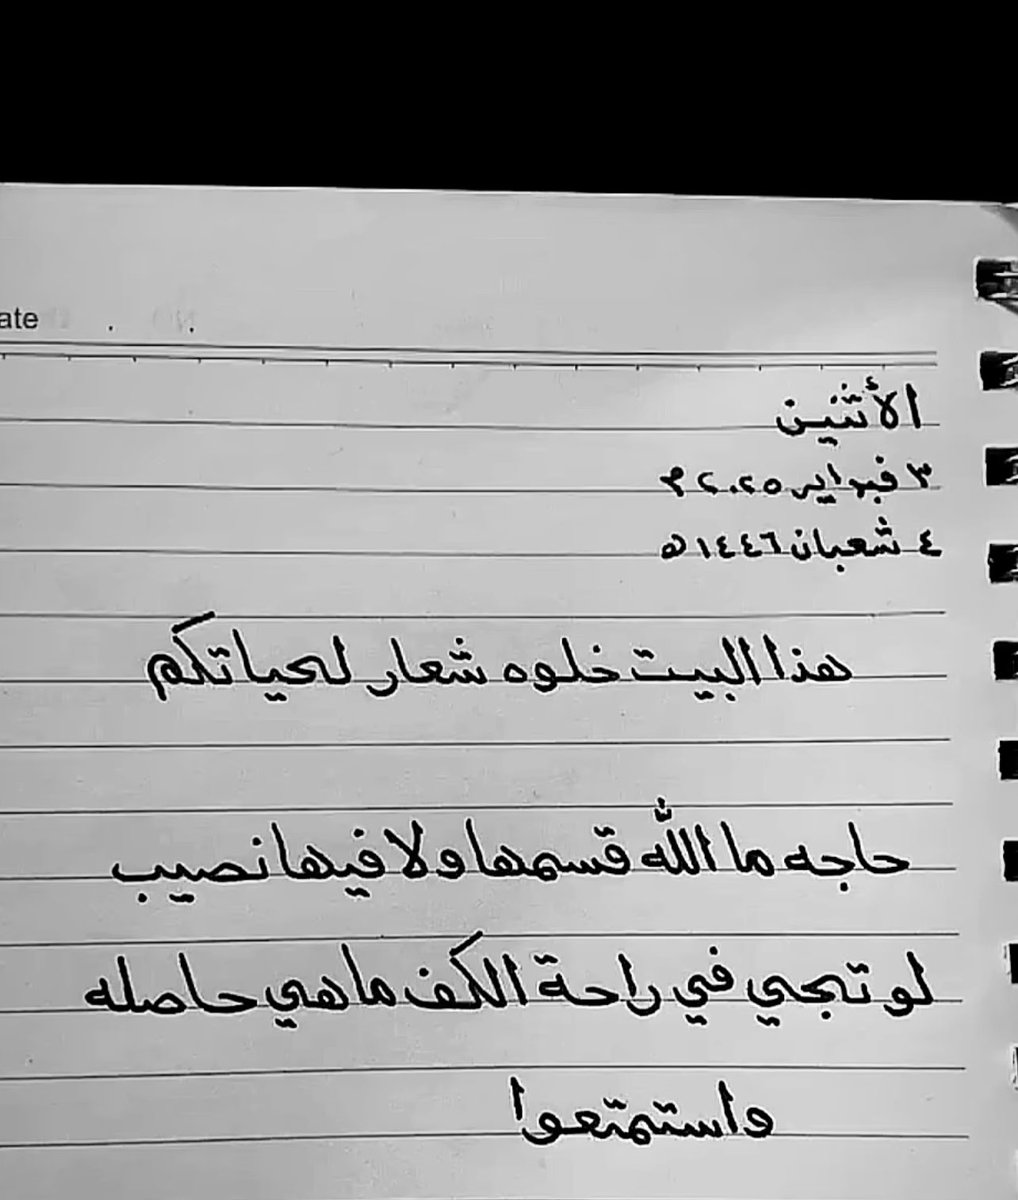 ate
الأثنين
٣ فبراير ٢٠٢٥ م
٤ شعبان ١٤٤٦ ه
هذا البيت خلوه شعار لحياتكم
حاجه ما الله قسمها ولا فيها نصيب
لو تجي في راحة الكف ماهي حاصله
واستمتعوا